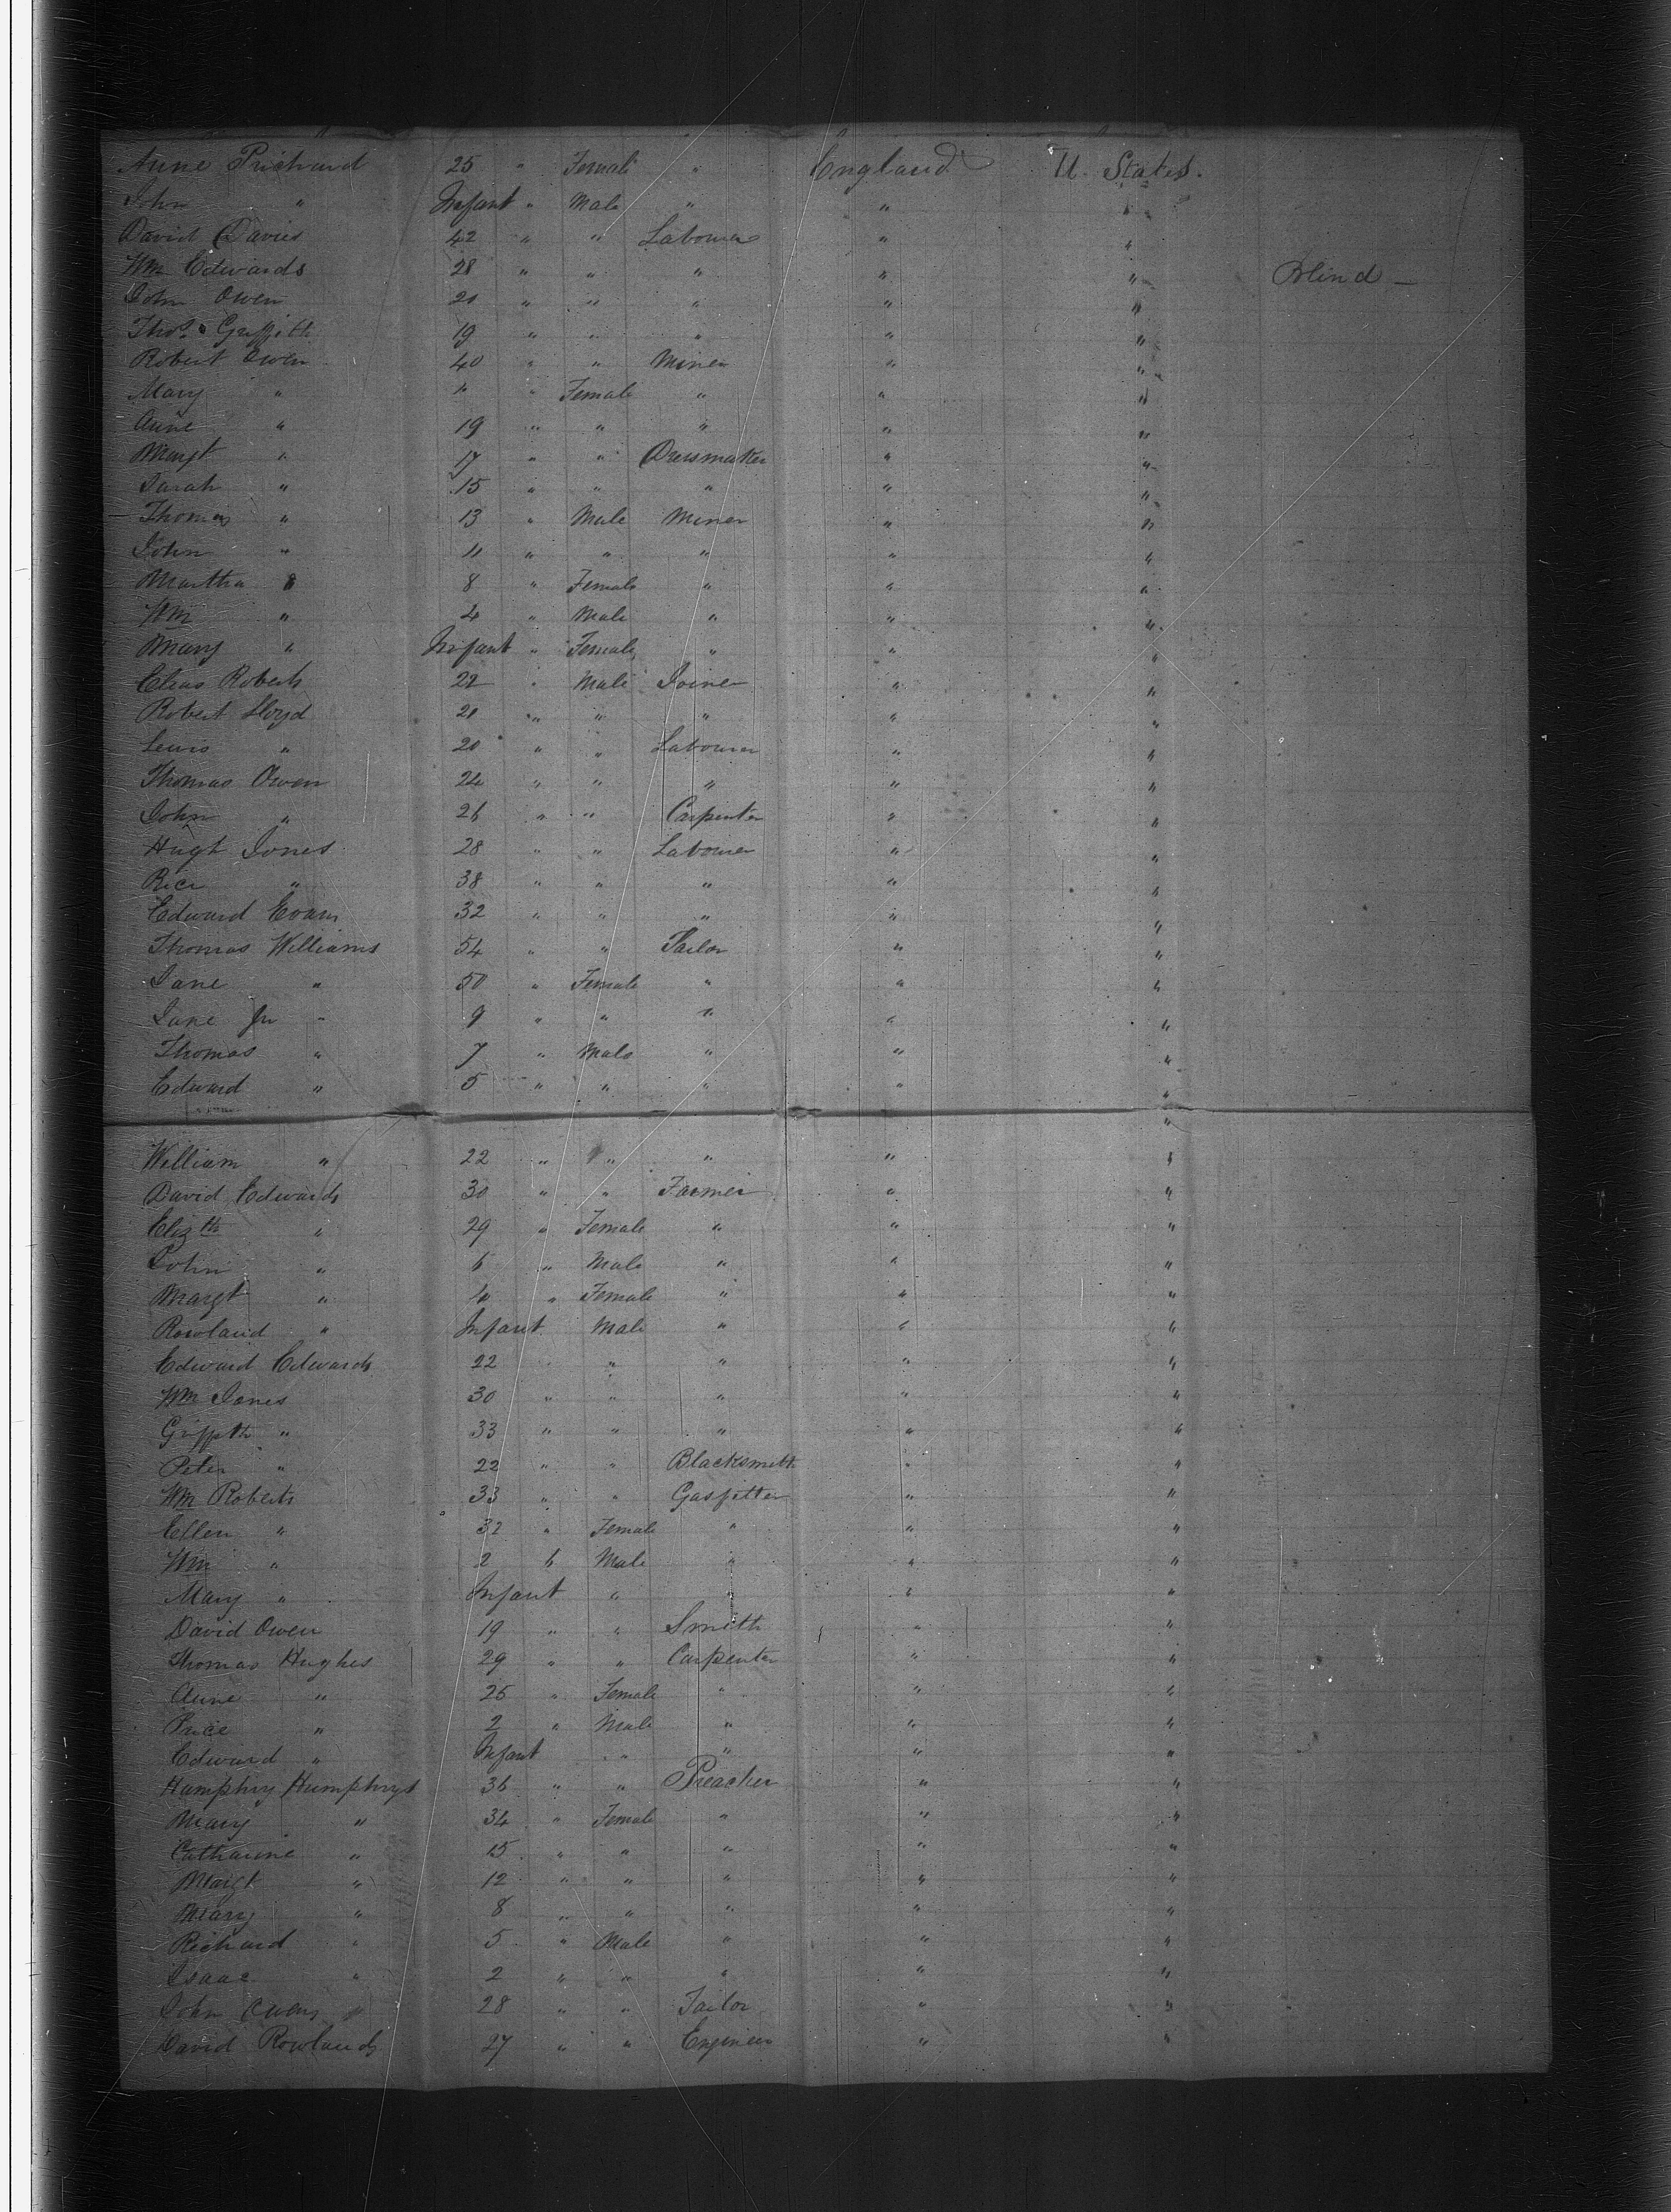 Anne Prichard 25 " Female " England U. States.
John " Infant " Male " " "
David Davies 42 " " Labourer " "
Wm Edwards 28 " " " " " Blind —
John Owen 21 " " " " "
Thos. Griffith 19 " " " " "
Robert Owen 40 " " Miner " "
Mary " " " Female " " "
Anne " 19 " " " " "
Margt " 17 " " Dressmaker " "
Sarah " 15 " " " " "
Thomas " 13 " Male Miner " "
John " 11 " " " " "
Martha " 8 " Female " " "
Wm " 4 " Male " " "
Mary " Infant " Female " " "
Elias Roberts 22 " Male Joiner " "
Robert Lloyd 21 " " " " "
Lewis " 20 " " Labourer " "
Thomas Owen 24 " " " " "
John " 26 " " Carpenter " "
Hugh Jones 28 " " Labourer " "
Rice " 38 " " " " "
Edward Evans 32 " " " " "
Thomas Williams 54 " " Tailor " "
Jane " 50 " Female " " "
Jane Jr " 9 " " " " "
Thomas " 7 " Male " " "
Edward " 5 " " " " "
William " 22 " " " " "
David Edwards 30 " " Farmer " "
Elizth " 29 " Female " " "
John " 6 " Male " " "
Margt " " Female " " "
Rowland " Infant Male " " "
Edward Edwards 22 " " " " "
Wm Jones 30 " " " " "
Griffith " 33 " " " " "
Peter " 22 " " Blacksmith " "
Wm Roberts 33 " " Gasfitter " "
Ellen " 32 " Female " " "
Wm " 2 6 Male " " "
Mary " Infant " " " "
David Owen 19 " " Smith " "
Thomas Hughes 29 " " Carpenter " "
Anne " 25 " Female " " "
Price " 2 " Male " " "
Edward " Infant " " " "
Humphry Humphrys 36 " " Preacher " "
Mary " 34 " Female " " "
Catharine " 15 " " " " "
Margt " 12 " " " " "
Mary " 8 " " " " "
Richard " 5 " Male " " "
Isaac " 2 " " " " "
John Owens " 28 " " Tailor " "
David Rowlands 27 " " Engineer " "